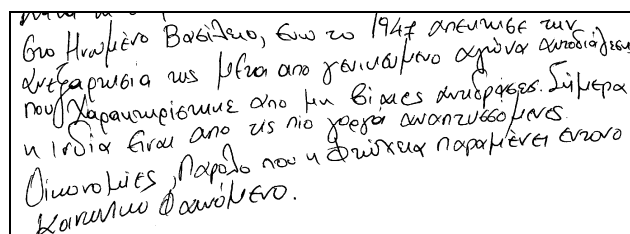 στο Ηνωμένο Βασίλειο, ενώ το 1947 απέκτησε την
ανεξαρτησία της μέσα από γενικευμένο αγώνα
που χαρακτηρίστηκε από μη βίαιες αντιδράσεις. Σήμερα
η Ινδία είναι από τις πιο γοργά αναπτυσσόμενες
Οικονομίες, Παρόλο που η Φτώχεια παραμένει έντονο
κοινωνικό Φαινόμενο.